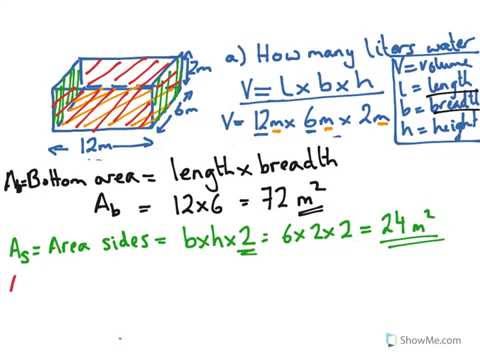 a) How many liters water
V = l x b x h
V = 12m x 6m x 2m
V = volume
l = length
b = breadt
h = height
2m
6m
12m
Ab=Bottom area = length x breadth
Ab = 12x6 = 72 m²
As = Area sides = bxhx2 = 6x2x2 = 24 m²
ShowMe.com